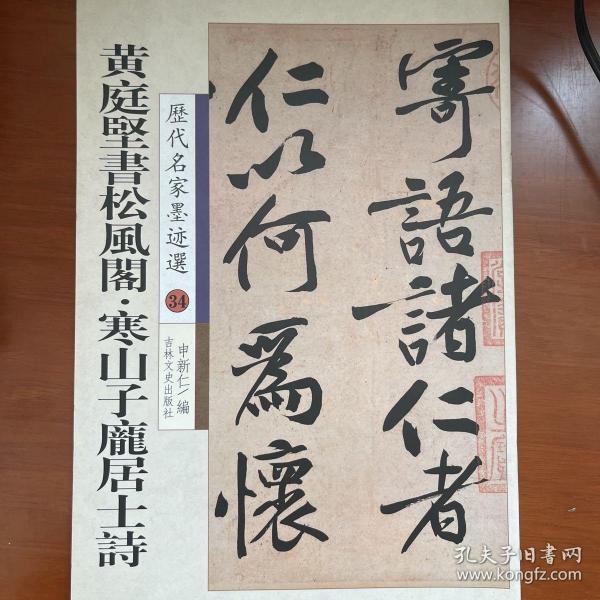 寄語諸仁者
仁以何爲懷
歷代名家墨迹選
34
申新仁/編
吉林文史出版社
黄庭堅書松風閣·寒山子龐居士詩
孔夫子旧書网
www.kongfz.com